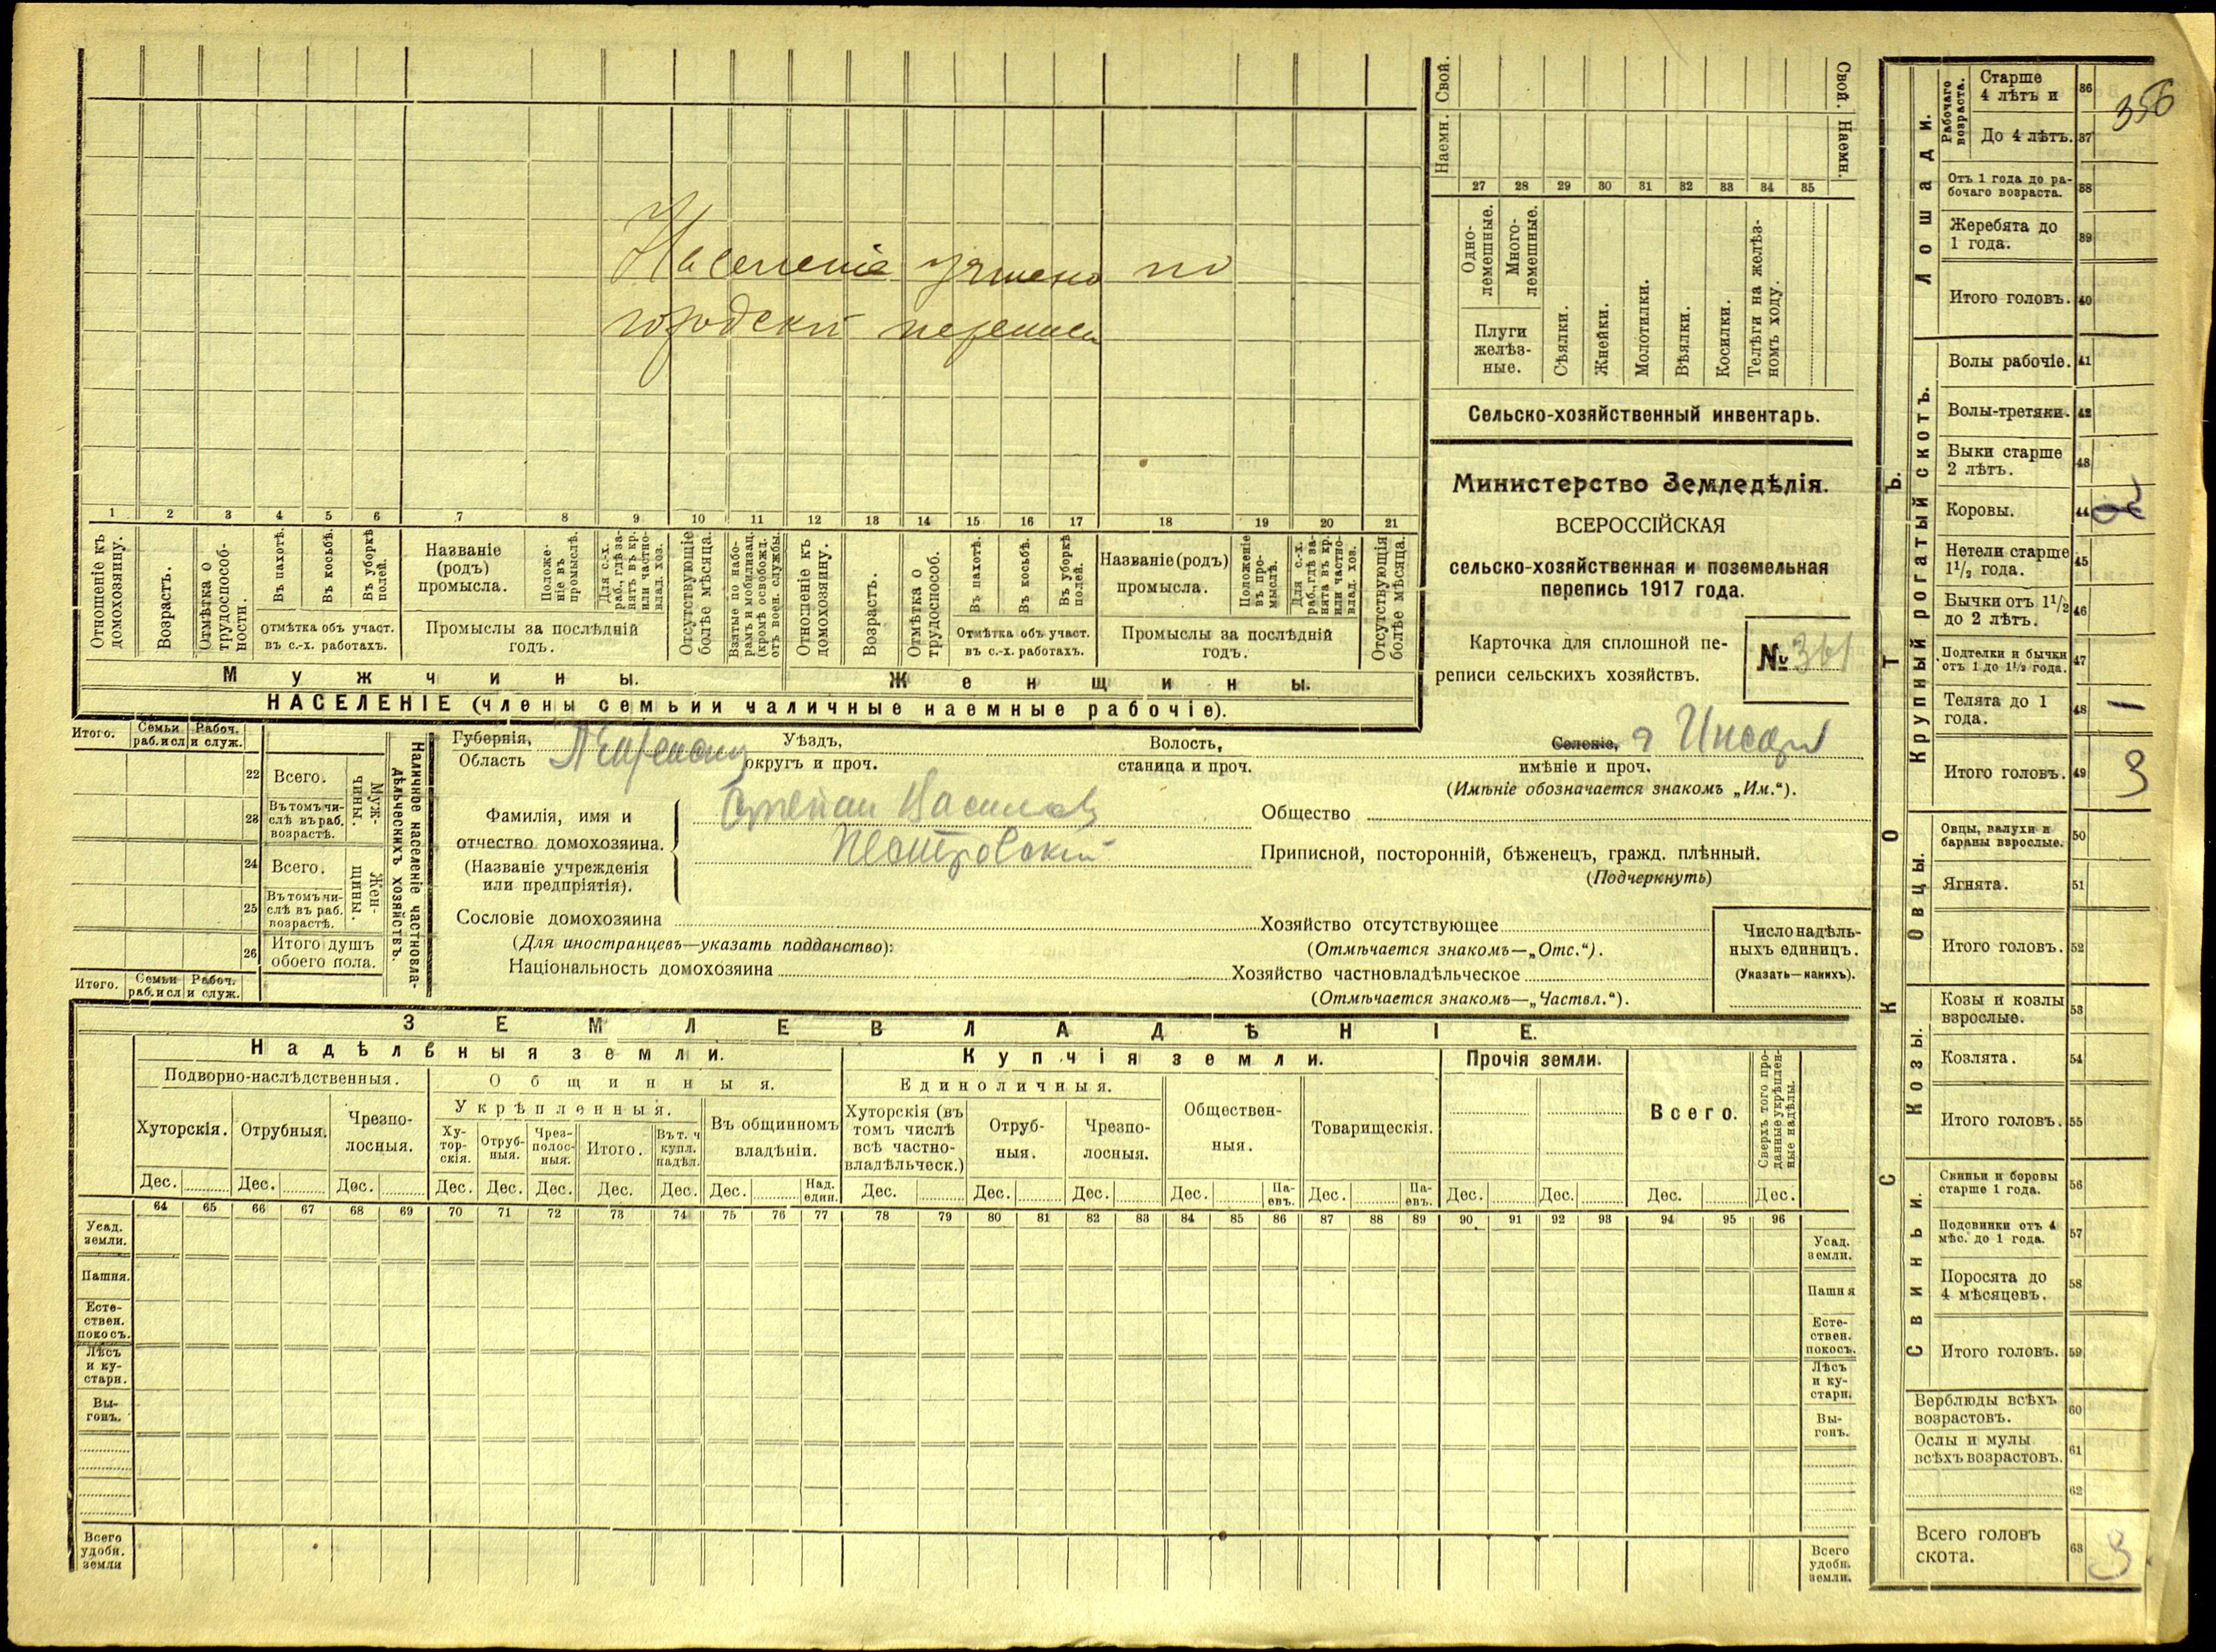 Свой. Свой.
Наемн. Наемн.
356
Населеніе учтено по
городской переписи
27 28 29 30 31 32 33 34 35
Одно-лемешные.
Много-лемешные.
Плуги желѣз-ные.
Сѣялки.
Жнейки.
Молотилки.
Вѣялки.
Косилки.
Телѣги на желѣз-номъ ходу.
Сельско-хозяйственный инвентарь.
Министерство Земледѣлія.
ВСЕРОССІЙСКАЯ
сельско-хозяйственная и поземельная
перепись 1917 года.
Карточка для сплошной пе-
реписи сельскихъ хозяйствъ.
№ 361
1 2 3 4 5 6 7 8 9 10 11 12 13 14 15 16 17 18 19 20 21
Отношеніе къ домохозяину.
Возрастъ.
Отмѣтка о трудоспособ-ности.
Въ пахотѣ.
Въ косьбѣ.
Въ уборкѣ полей.
Отмѣтка объ участ.
въ с.-х. работахъ.
Названіе
(родъ)
промысла.
Положе-ніе въ промыслѣ.
Для с.-х. раб., гдѣ за-нятъ въ кр. или частно-влад. хоз.
Промыслы за послѣдній
годъ.
Отсутствующіе болѣе мѣсяца.
Взятые по набо-рамъ и мобилизац. (кромѣ освобожд. отъ воен. службы.
Отношеніе къ домохозяину.
Возрастъ.
Отмѣтка о трудоспособ.
Въ пахотѣ.
Въ косьбѣ.
Въ уборкѣ полей.
Отмѣтка объ участ.
въ с.-х. работахъ.
Названіе (родъ)
промысла.
Положеніе въ про-мыслѣ.
Для с.-х. раб., гдѣ за-нята въ кр. или частно-влад. хоз.
Промыслы за послѣдній
годъ.
Отсутствующія болѣе мѣсяца.
Мужчины. Женщины.
НАСЕЛЕНІЕ (члены семьи и наличные наемные рабочіе).
Итого. Семьи раб. и сл. Рабоч. и служ.
22 Всего.
23 Въ томъ чи-слѣ въ раб. возрастѣ.
Муж-чины.
24 Всего.
25 Въ томъ чи-слѣ въ раб. возрастѣ.
Жен-щины.
26 Итого душъ обоего пола.
Итого. Семьи раб. и сл. Рабоч. и служ.
Наличное населеніе частновла-дѣльческихъ хозяйствъ.
Губернія, Уѣздъ, Волость, Селеніе, г Инсар
Область Пензенская округъ и проч. станица и проч. имѣніе и проч.
(Имѣніе обозначается знакомъ „Им.“).
Фамилія, имя и
отчество домохозяина.
(Названіе учрежденія
или предпріятія).
Степан Василев
Петровский
Общество
Приписной, посторонній, бѣженецъ, гражд. плѣнный.
(Подчеркнуть)
Сословіе домохозяина
(Для иностранцевъ—указать подданство):
Національность домохозяина
Хозяйство отсутствующее
(Отмѣчается знакомъ—„Отс.“).
Хозяйство частновладѣльческое
(Отмѣчается знакомъ—„Частвл.“).
Число надѣль-
ныхъ единицъ.
(Указать—какихъ).
ЗЕМЛЕВЛАДѢНІЕ.
Надѣльныя земли. Купчія земли. Прочія земли.
Подворно-наслѣдственныя. Общинныя. Единоличныя.
Укрѣпленныя.
Хуторскія. Отрубныя. Чрезпо-лосныя.
Ху-тор-скія. Отруб-ныя. Чрез-полос-ныя. Итого. Въ т. ч. купл. надѣл.
Въ общинномъ владѣніи.
Хуторскія (въ томъ числѣ всѣ частно-владѣльческ.)
Отруб-ныя. Чрезпо-лосныя. Обществен-ныя. Товарищескія.
Всего.
Сверхъ того про-данные укрѣплен-ные надѣлы.
Дес. Дес. Дес. Дес. Дес. Дес. Дес. Дес. Дес. Над. един. Дес. Дес. Дес. Дес. Па-евъ. Дес. Па-евъ. Дес. Дес. Дес. Дес.
64 65 66 67 68 69 70 71 72 73 74 75 76 77 78 79 80 81 82 83 84 85 86 87 88 89 90 91 92 93 94 95 96
Усад. земли. Усад. земли.
Пашня. Пашня
Есте-ствен. покосъ. Есте-ствен. покосъ.
Лѣсъ и ку-старн. Лѣсъ и ку-старн.
Вы-гонъ. Вы-гонъ.
Всего удобн. земли Всего удобн. земли.
СКОТЪ.
Лошади.
Рабочаго возраста.
Старше 4 лѣтъ и 36
До 4 лѣтъ. 37
Отъ 1 года до ра-бочаго возраста. 38
Жеребята до 1 года. 39
Итого головъ. 40
Крупный рогатый скотъ.
Волы рабочіе. 41
Волы-третяки. 42
Быки старше 2 лѣтъ. 43
Коровы. 44 2
Нетели старше 1½ года. 45
Бычки отъ 1½ до 2 лѣтъ. 46
Подтелки и бычки отъ 1 до 1½ года. 47
Телята до 1 года. 48 1
Итого головъ. 49 3
Овцы.
Овцы, валухи и бараны взрослые. 50
Ягнята. 51
Итого головъ. 52
Козы.
Козы и козлы взрослые. 53
Козлята. 54
Итого головъ. 55
Свиньи.
Свиньи и боровы старше 1 года. 56
Подсвинки отъ 4 мѣс. до 1 года. 57
Поросята до 4 мѣсяцевъ. 58
Итого головъ. 59
Верблюды всѣхъ возрастовъ. 60
Ослы и мулы всѣхъ возрастовъ. 61
62
Всего головъ скота. 63 3